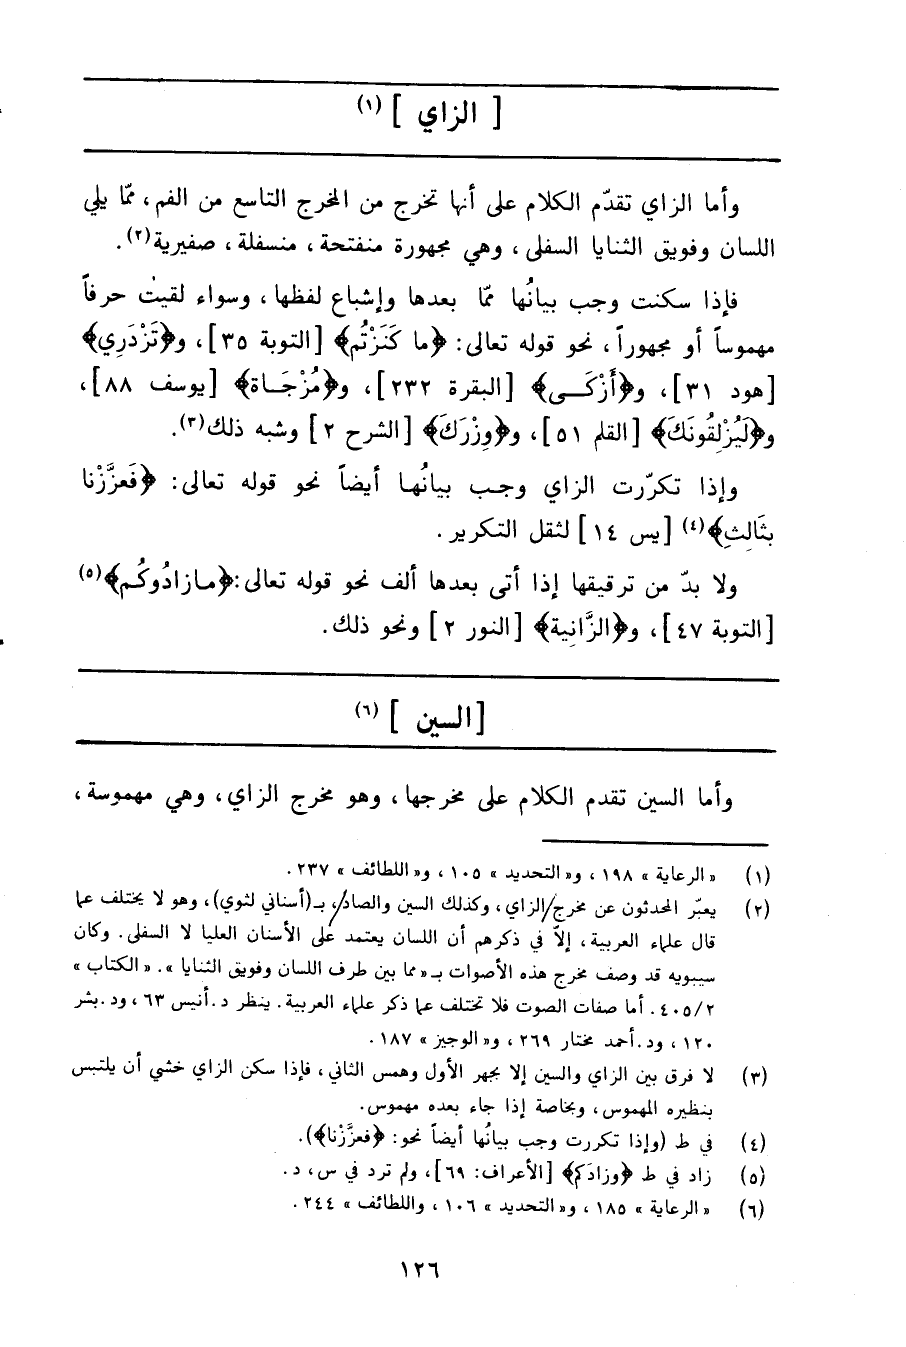 [ الزاي ] (١)
وأما الزاي تقدّم الكلام على أنها تخرج من المخرج التاسع من الفم، ممّا يلي
اللسان وفويق الثنايا السفلى، وهي مجهورة منفتحة، منسفلة، صفيرية(٢).
فإذا سكنت وجب بيانُها ممّا بعدها وإشباع لفظها، وسواء لقيتْ حرفاً
مهموساً أو مجهوراً، نحو قوله تعالى: ﴿ما كَنَزْتُم﴾ [التوبة ٣٥]، و﴿تَزْدَرِي﴾
[هود ٣١]، و﴿أَزْكَـى﴾ [البقرة ٢٣٢]، و﴿مُزْجَـاة﴾ [يوسف ٨٨]،
و﴿لَيُزْلِقُونَكَ﴾ [القلم ٥١]، و﴿وِزْرَكَ﴾ [الشرح ٢] وشبه ذلك(٣).
وإذا تكرّرت الزاي وجب بيانُها أيضاً نحو قوله تعالى: ﴿فَعزَّزْنا
بثَالِثٍ﴾(٤) [يس ١٤] لثقل التكرير.
ولا بدّ من ترقيقها إذا أتى بعدها ألف نحو قوله تعالى:﴿مـازادُوكُـم﴾(٥)
[التوبة ٤٧]، و﴿الزَّانِية﴾ [النور ٢] ونحو ذلك.
[السين ] (٦)
وأما السين تقدم الكلام على مخرجها، وهو مخرج الزاي، وهي مهموسة،
(١) « الرعاية » ١٩٨، و« التحديد » ١٠٥، و« اللطائف » ٢٣٧.
(٢) يعبّر المحدثون عن مخرج الزاي، وكذلك السين والصاد، بـ(أسناني لثوي)، وهو لا يختلف عما
قال علماء العربية، إلاّ في ذكرهم أن اللسان يعتمد على الأسنان العليا لا السفلى. وكان
سيبويه قد وصف مخرج هذه الأصوات بـ« مما بين طرف اللسان وفويق الثنايا ». « الكتاب »
٤٠٥/٢. أما صفات الصوت فلا تختلف عما ذكر علماء العربية. ينظر د.أنيس ٦٣، ود.بشر
١٢٠، ود.أحمد مختار ٢٦٩، و« الوجيز » ١٨٧.
(٣) لا فرق بين الزاي والسين إلا بجهر الأول وهمس الثاني، فإذا سكن الزاي خشي أن يلتبس
بنظيره المهموس، وبخاصة إذا جاء بعده مهموس.
(٤) في ط (وإذا تكررت وجب بيانُها أيضاً نحو: ﴿فعزَّزْنا﴾).
(٥) زاد في ط ﴿وزادَكم﴾ [الأعراف: ٦٩]، ولم ترد في س، د.
(٦) « الرعاية » ١٨٥، و« التحديد » ١٠٦، واللطائف » ٢٤٤.
١٢٦